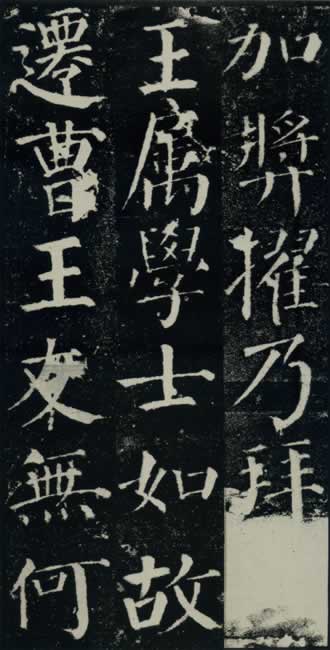 加獎擢乃拜
王属學士如故
遷曹王友無何